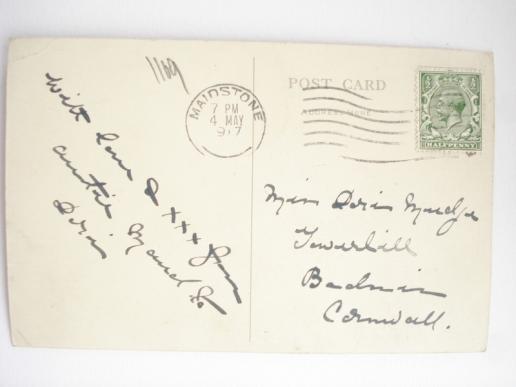 1169
with love & xxx from
auntie Maud to
Doris
MAIDSTONE
7 PM
4 MAY
POST CARD
ADDRESS HERE
HALFPENNY
Miss Doris Mudge
Towerhill
Bodmin
Cornwall.